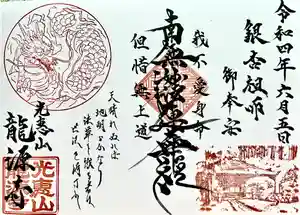 令和四年六月五日
銀杏祖師
御奉安
我不愛身命
南無妙法蓮華経
但惜無上道
天晴れぬれば
地明かなり
法華を識る者は
世法を得可きか
光恵山
龍源寺